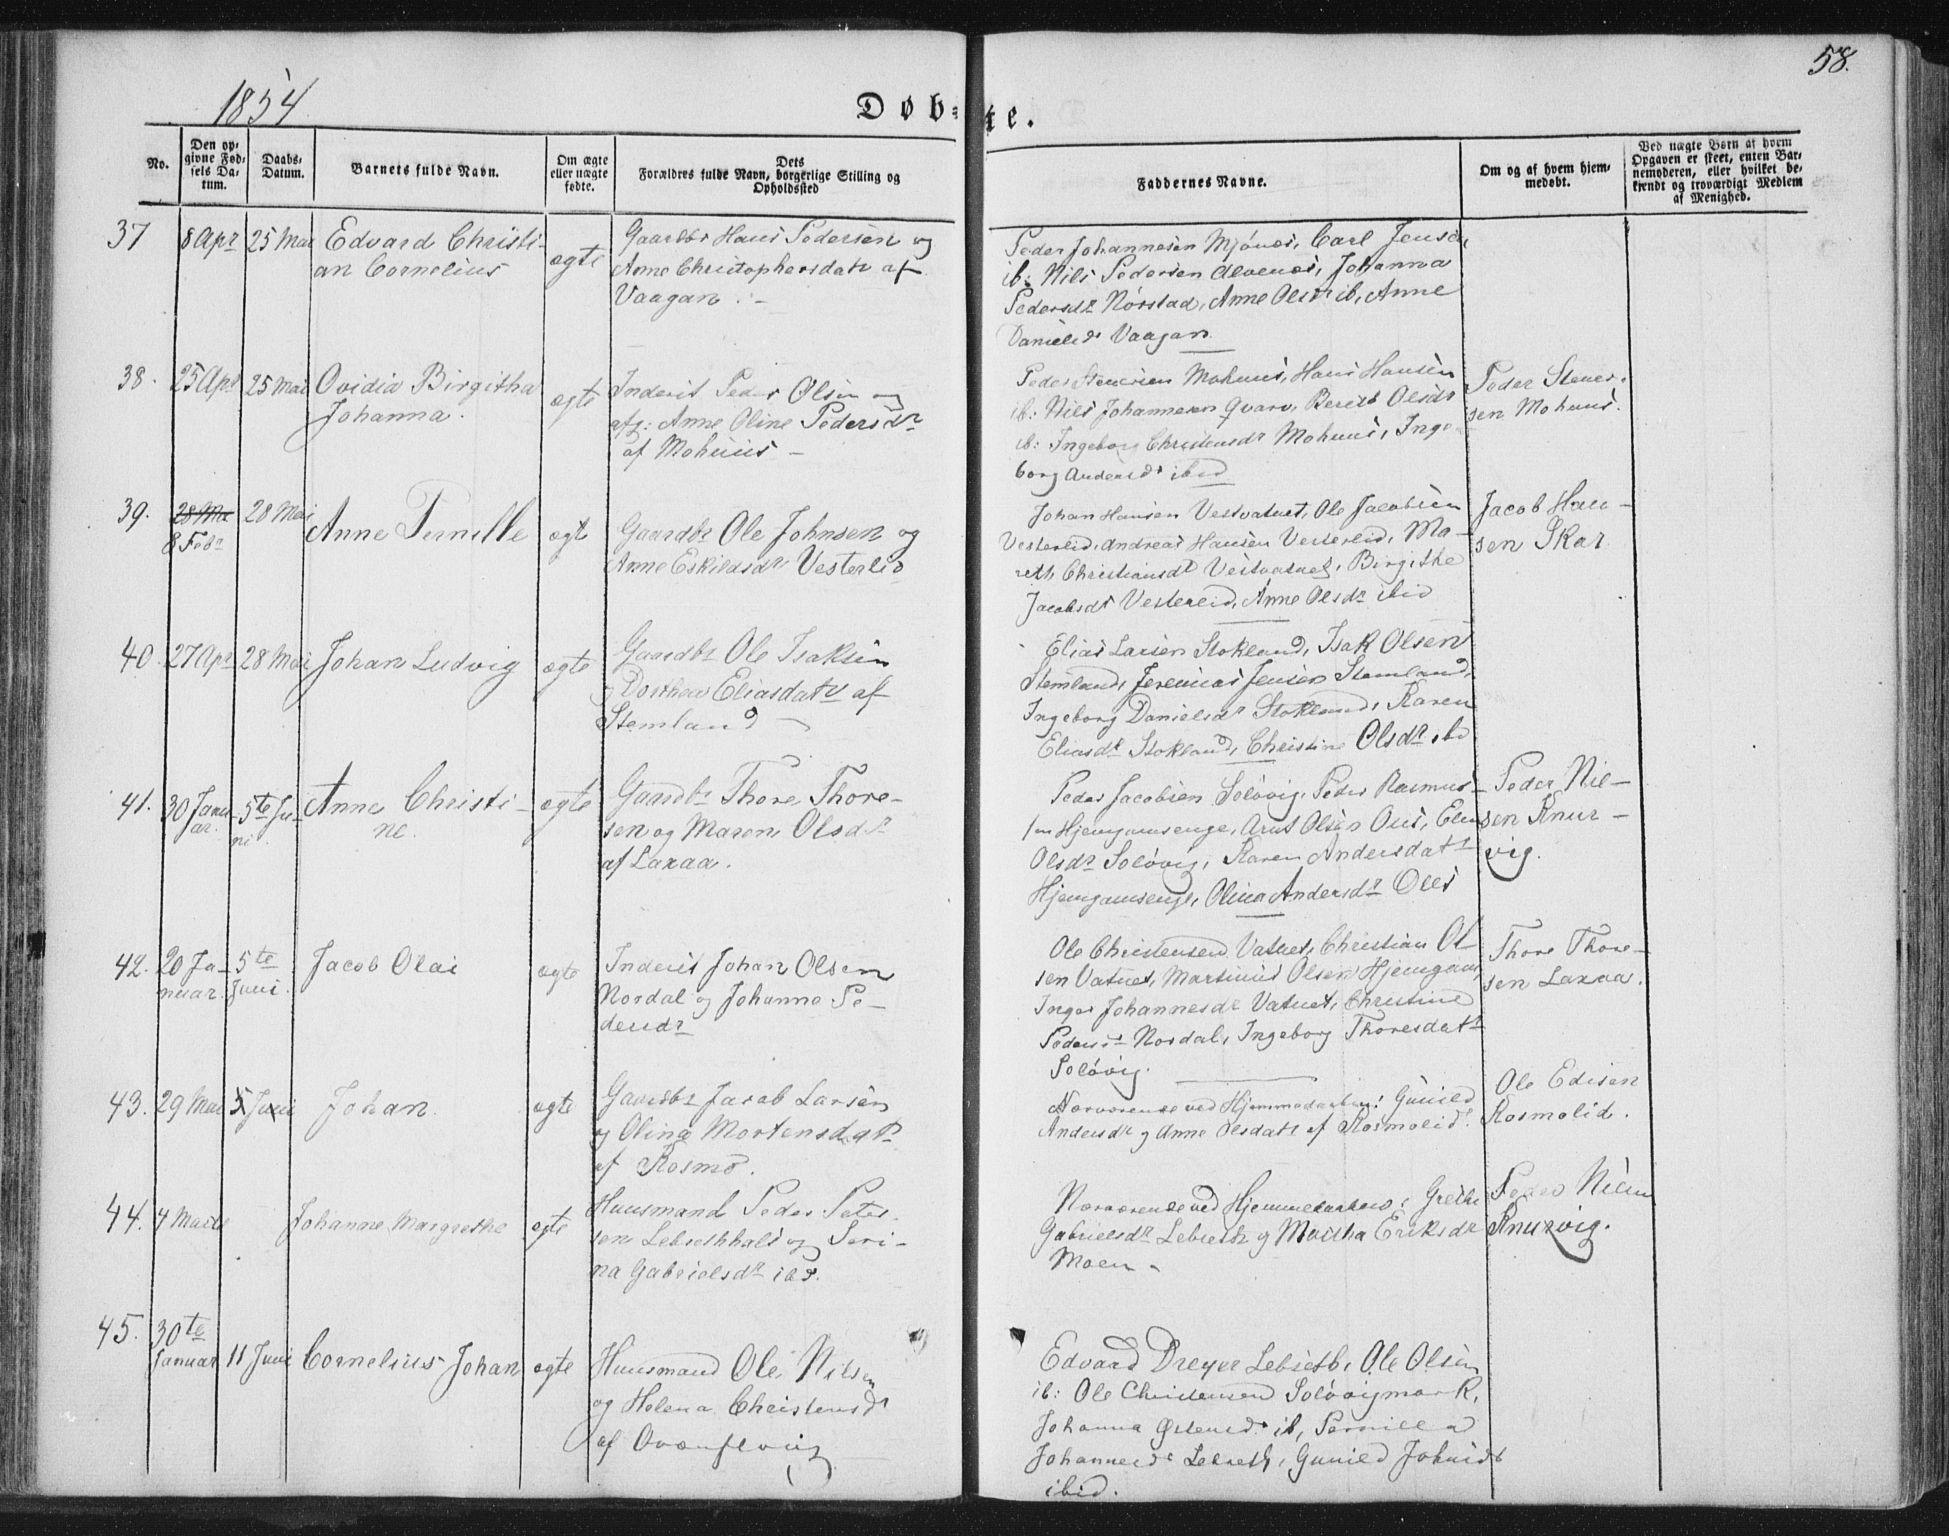 58.
1854
Døb=te.
No.
Den op=
givne Fød=
sels Da=
tum.
Daabs=
Datum.
Barnets fulde Navn.
Om ægte
eller uægte
fødte.
Dets
Forældres fulde Navn, borgerlige Stilling og
Opholdssted
Faddernes Navne.
Om og af hvem hjem=
medøbt.
Ved uægte Børn af hvem
Opgaven er skeet, enten Bar=
nemoderen, eller hvilket be=
kjendt og troværdigt Medlem
af Menighed.
37 8 Apr 25 Mai Edvard Christi-
an Cornelius
ægte
Gaardbr Hans Pedersen og
Anne Christophersdatr af
Vaagan.
Peder Johannesen Mjønes, Carl Jensen
ib: Nils Pedersen Alvenes, Johanna
Pedersdr Nørstad, Anne Olsdr ib, Anne
Danielsdr Vaagan.
38. 25 Apr 25 Mai Ovidia Birgitha
Johanna.
ægte
Inderst Peder Olsen og
Anne Oline Pedersdr
af Mohuus
Peder Steensen Mohuus, Hans Hansen
ib: Nils Johannesen Qvarv, Berit Olsdr
ib: Ingeborg Christensdr Mohuus, Inge-
borg Andersdr ibid
Peder Steen-
sen Mohuus.
39. 28 Mai
8 Febr
28 Mai Anne Pernille
ægte
Gaardbr Ole Johnsen og
Anne Eskildsdr Vesterlid
Johan Hansen Vestvatnet, Ole Jacobsen
Vesterlid, Andreas Hansen Vesterlid, Ma-
reth Christiansdr Vestvatnet, Birgithe
Jacobsdr Vesterlid, Anne Olsdr ibid
Jacob Han-
sen Skar
40. 27 Apr 28 Mai Johan Ludvig
ægte
Gaardbr Ole Isaksen
og Dorthea Eliasdatr af
Stemland
Elias Larsen Stokland, Isak Olsen
Stemland, Jeremias Jensen Stemland,
Ingeborg Danielsdr Stokland, Karen
Eliasdr Stokland, Christine Olsdr ibd
41. 30 Janu-
ar.
5te Ju-
ni
Anne Christi-
ne.
ægte
Gaardbr Thore Thore-
sen og Maren Olsdr
af Laxaa.
Peder Jacobsen Soløvig, Peder Rasmus-
sen Hjemgamsenge, Arnt Olsen Oees, Elen
Olsdr Soløvig, Karen Andersdatr
Hjemgamsenge, Olina Andersdr Oees
Peder Niel-
sen Knur-
vig.
42. 20 Ja-
nuar.
5te
Juni.
Jacob Olai
ægte
Inderst Johan Olsen
Nordal og Johanna Pe-
dersdr
Ole Christensen Vatnet, Christian Ol-
sen Vatnet, Martinus Olsen Hjemgam,
Inger Johannesdr Vatnet, Christine
Pedersdr Nordal, Ingeborg Thoresdatr
Soløvig.
Thore Thore-
sen Laxaa.
43. 29 Mai 5 Juni Johan.
ægte
Gaardbr Jacob Larsen
og Olina Mortensdatr
af Rosmo.
Nærværende ved Hjemmedaaben: Gunild
Andersdr og Anne Olsdatr af Rosmolid.
Ole Edisen
Rosmolid.
44. 4 Marts Johanne Margrethe
ægte
Huusmand Peder Peter-
sen Lebesthhals og Seri-
na Gabrielsdr ibd.
Nærværende ved Hjemmedaaben: Grethe
Gabrielsdr Lebesth og Martha Eriksdr
Moen
Peder Nilsen
Knurvig.
45. 30te
Januar
11 Juni Cornelius Johan
ægte
Huusmand Ole Nilsen
og Helena Christensdr
af
Edvard Dreyer Lebesth, Ole Olsen
ib: Ole Christensen Soløvigmark,
Johanna Østensdr ib, Pernilla
Johannesdr Lebesth, Gunild Johnsdr
ibid.